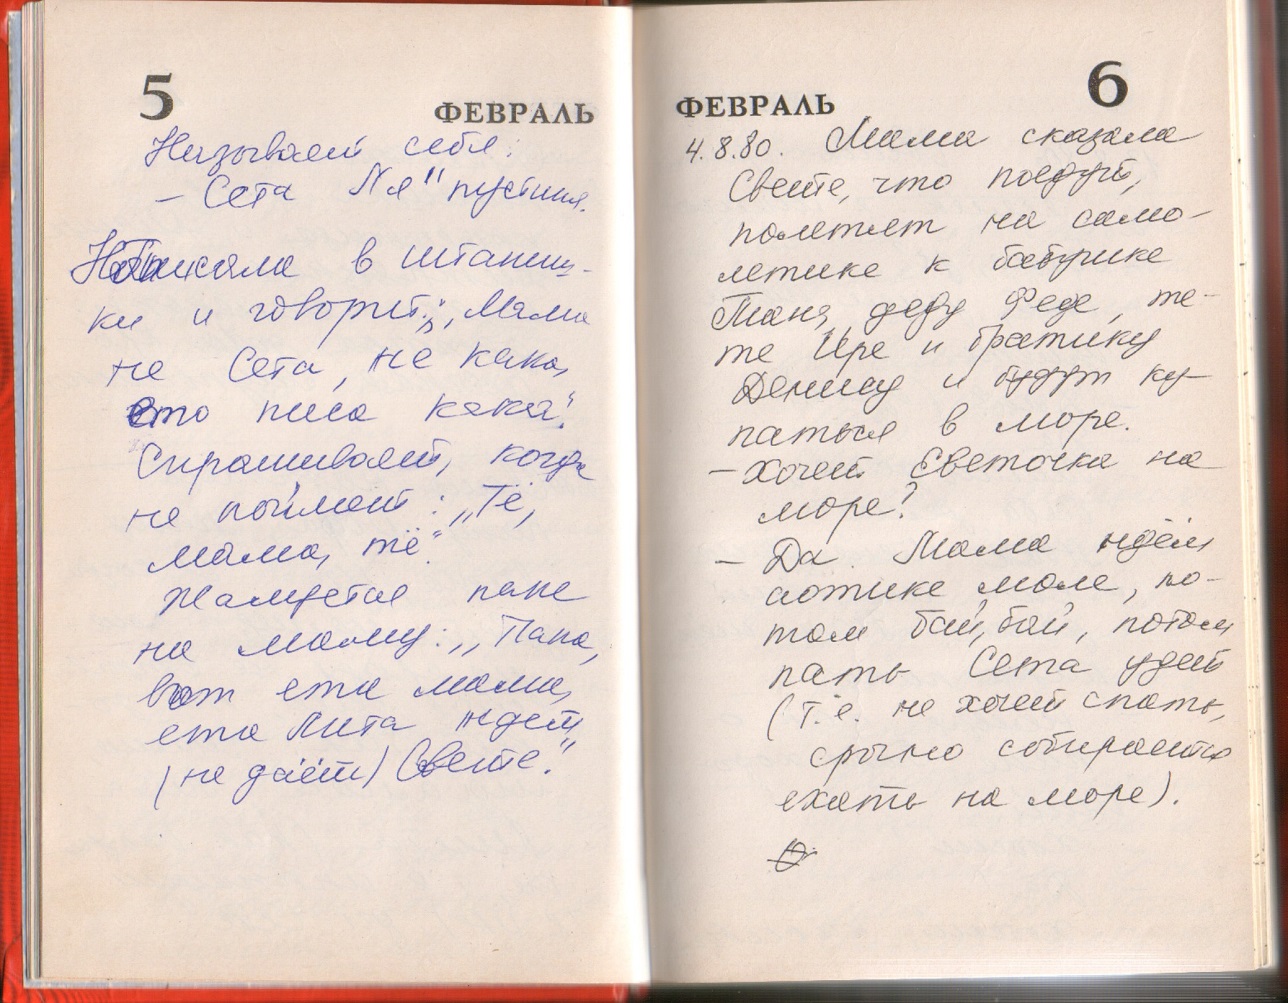 5
ФЕВРАЛЬ
Называет себя:
– Сета
Написала в штаниш-
ки и говорит: „Мама
не Сета, не кака,
ето писа кака".
Спрашивает, когда
не поймёт: „Тё,
мама, тё".
Жалуется папе
на маму: „Папа,
вот ета мама,
ета Пита ндет
(не даёт) Свете."
ФЕВРАЛЬ
6
4.8.80. Мама сказала
Свете, что поедут,
полетят на само-
летике к бабушке
Таня, деду Феде, те-
те Ире и братику
Денису и будут ку-
паться в море.
– Хочет Светочка на
море?
– Да. Мама ндём
аотике, моле, по-
том бай, бай, потом
пать Сета удет
(т.е. не хочет спать,
срочно собирается
ехать на море).